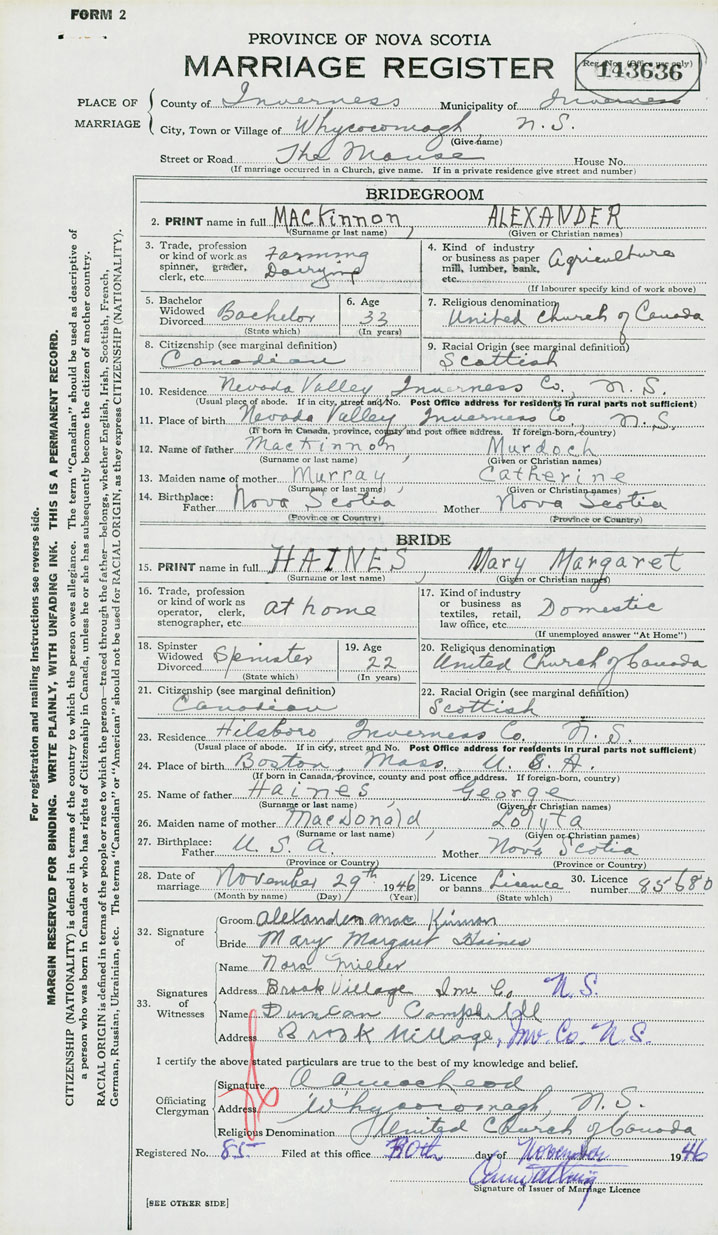 FORM 2
PROVINCE OF NOVA SCOTIA
MARRIAGE REGISTER
Reg. No. (Office use only)
143636
PLACE OF MARRIAGE
County of Inverness Municipality of Inverness
City, Town or Village of Whycocomagh, N.S.
(Give name)
Street or Road The Manse House No.
(If marriage occurred in a Church, give name. If in a private residence give street and number)
BRIDEGROOM
2. PRINT name in full MACKinnon, ALEXANDER
(Surname or last name) (Given or Christian names)
3. Trade, profession or kind of work as spinner, grader, clerk, etc. Farming Dairying
4. Kind of industry or business as paper mill, lumber, bank, etc. Agriculture
(If labourer specify kind of work above)
5. Bachelor Widowed Divorced Bachelor
(State which)
6. Age 33
(In years)
7. Religious denomination United Church of Canada
8. Citizenship (see marginal definition) Canadian
9. Racial Origin (see marginal definition) Scottish
10. Residence Nevada Valley Inverness Co., N.S.
(Usual place of abode. If in city, street and No. Post Office address for residents in rural parts not sufficient)
11. Place of birth Nevada Valley Inverness Co., N.S.
(If born in Canada, province, county and post office address. If foreign-born, country)
12. Name of father MacKinnon, Murdoch
(Surname or last name) (Given or Christian names)
13. Maiden name of mother Murray, Catherine
(Surname or last name) (Given or Christian names)
14. Birthplace: Father Nova Scotia Mother Nova Scotia
(Province or Country) (Province or Country)
BRIDE
15. PRINT name in full HAINES, Mary Margaret
(Surname or last name) (Given or Christian names)
16. Trade, profession or kind of work as operator, clerk, stenographer, etc. at home
17. Kind of industry or business as textiles, retail, law office, etc. Domestic
(If unemployed answer "At Home")
18. Spinster Widowed Divorced Spinster
(State which)
19. Age 22
(In years)
20. Religious denomination United Church of Canada
21. Citizenship (see marginal definition) Canadian
22. Racial Origin (see marginal definition) Scottish
23. Residence Hilsboro, Inverness Co. N.S.
(Usual place of abode. If in city, street and No. Post Office address for residents in rural parts not sufficient)
24. Place of birth Boston, Mass, U.S.A.
(If born in Canada, province, county and post office address. If foreign-born, country)
25. Name of father Haines, George
(Surname or last name) (Given or Christian names)
26. Maiden name of mother MacDonald, Loyta
(Surname or last name) (Given or Christian names)
27. Birthplace: Father U.S.A. Mother Nova Scotia
(Province or Country) (Province or Country)
28. Date of marriage November 29th 1946
(Month by name) (Day) (Year)
29. Licence or banns Licence
(State which)
30. Licence number 85680
32. Signature of
Groom Alexander MacKinnon
Bride Mary Margaret Haines
33. Signatures of Witnesses
Name Nora Miller
Address Brook Village Inv Co N.S.
Name Duncan Campbell
Address Brook Village, Inv. Co. N.S.
I certify the above stated particulars are true to the best of my knowledge and belief.
Officiating Clergyman
Signature
Address Whycocomagh, N.S.
Religious Denomination United Church of Canada
Registered No. 85 Filed at this office 30th day of November 1946
Signature of Issuer of Marriage Licence
[SEE OTHER SIDE]
For registration and mailing instructions see reverse side.
MARGIN RESERVED FOR BINDING. WRITE PLAINLY, WITH UNFADING INK. THIS IS A PERMANENT RECORD.
CITIZENSHIP (NATIONALITY) is defined in terms of the country to which the person owes allegiance. The term "Canadian" should be used as descriptive of
a person who was born in Canada or who has rights of Citizenship in Canada, unless he or she has subsequently become the citizen of another country.
RACIAL ORIGIN is defined in terms of the people or race to which the person—traced through the father—belongs, whether English, Irish, Scottish, French,
German, Russian, Ukrainian, etc. The terms "Canadian" or "American" should not be used for RACIAL ORIGIN, as they express CITIZENSHIP (NATIONALITY).